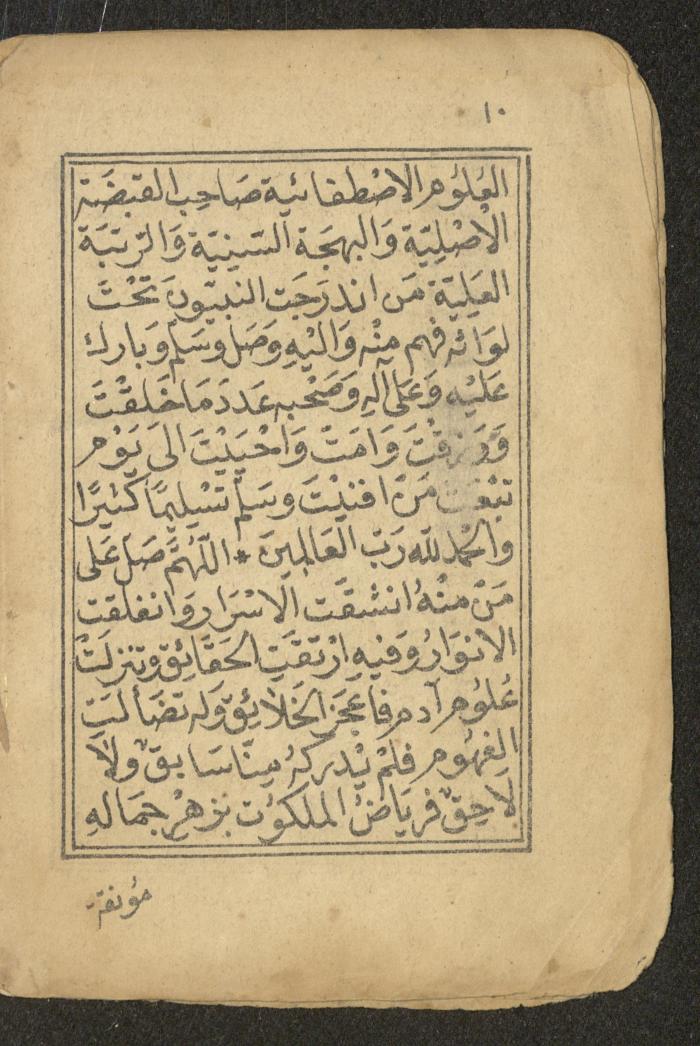 ١٠
العُلُومِ الاِصْطِفَائِيَةِ صَاحِبِ القَبْضَةِ
الاَصْلِيَّةِ وَالبَهجَةِ السَّنِيَّةِ وَالرّتبَةِ
العَلِيَّةِ مَن اندرَجَت النبيّونَ تَحْتَ
لوَائهِ فهم مِنْه وَاليْهِ وَصَل وسَلّم وَبارك
عَلَيْهِ وَعَلى آلهِ وَصَحْبهِ عَددَ مَا خَلَقْتَ
وَرَزقْتَ وَامَتّ وَاحْيَيْتَ الىَ يَوْمِ
تبْعَث مَنْ افنيْتَ وسَلّم تسْلِيمًا كثيرًا
وَالحَمْد للّه رَبّ العَالمِينَ * اللّهُمَّ صَل عَلى
مَنْ منْهُ انشقَّت الاسْرَار وَانفلقت
الانوَارُ وَفيْهِ ارْتقَتِ الحَقَائِق وَتنزلَتْ
عُلوُم آدم فاعْجَزَ الخَلائِقَ وَله تضَألتِ
الفهُوم فلَمْ يُدركهُ مِنّا سَابِقٌ وَلاَ
لاَحِقٌ فريَاضُ الملكوُت بزهْر جمَالهِ
مُونقة